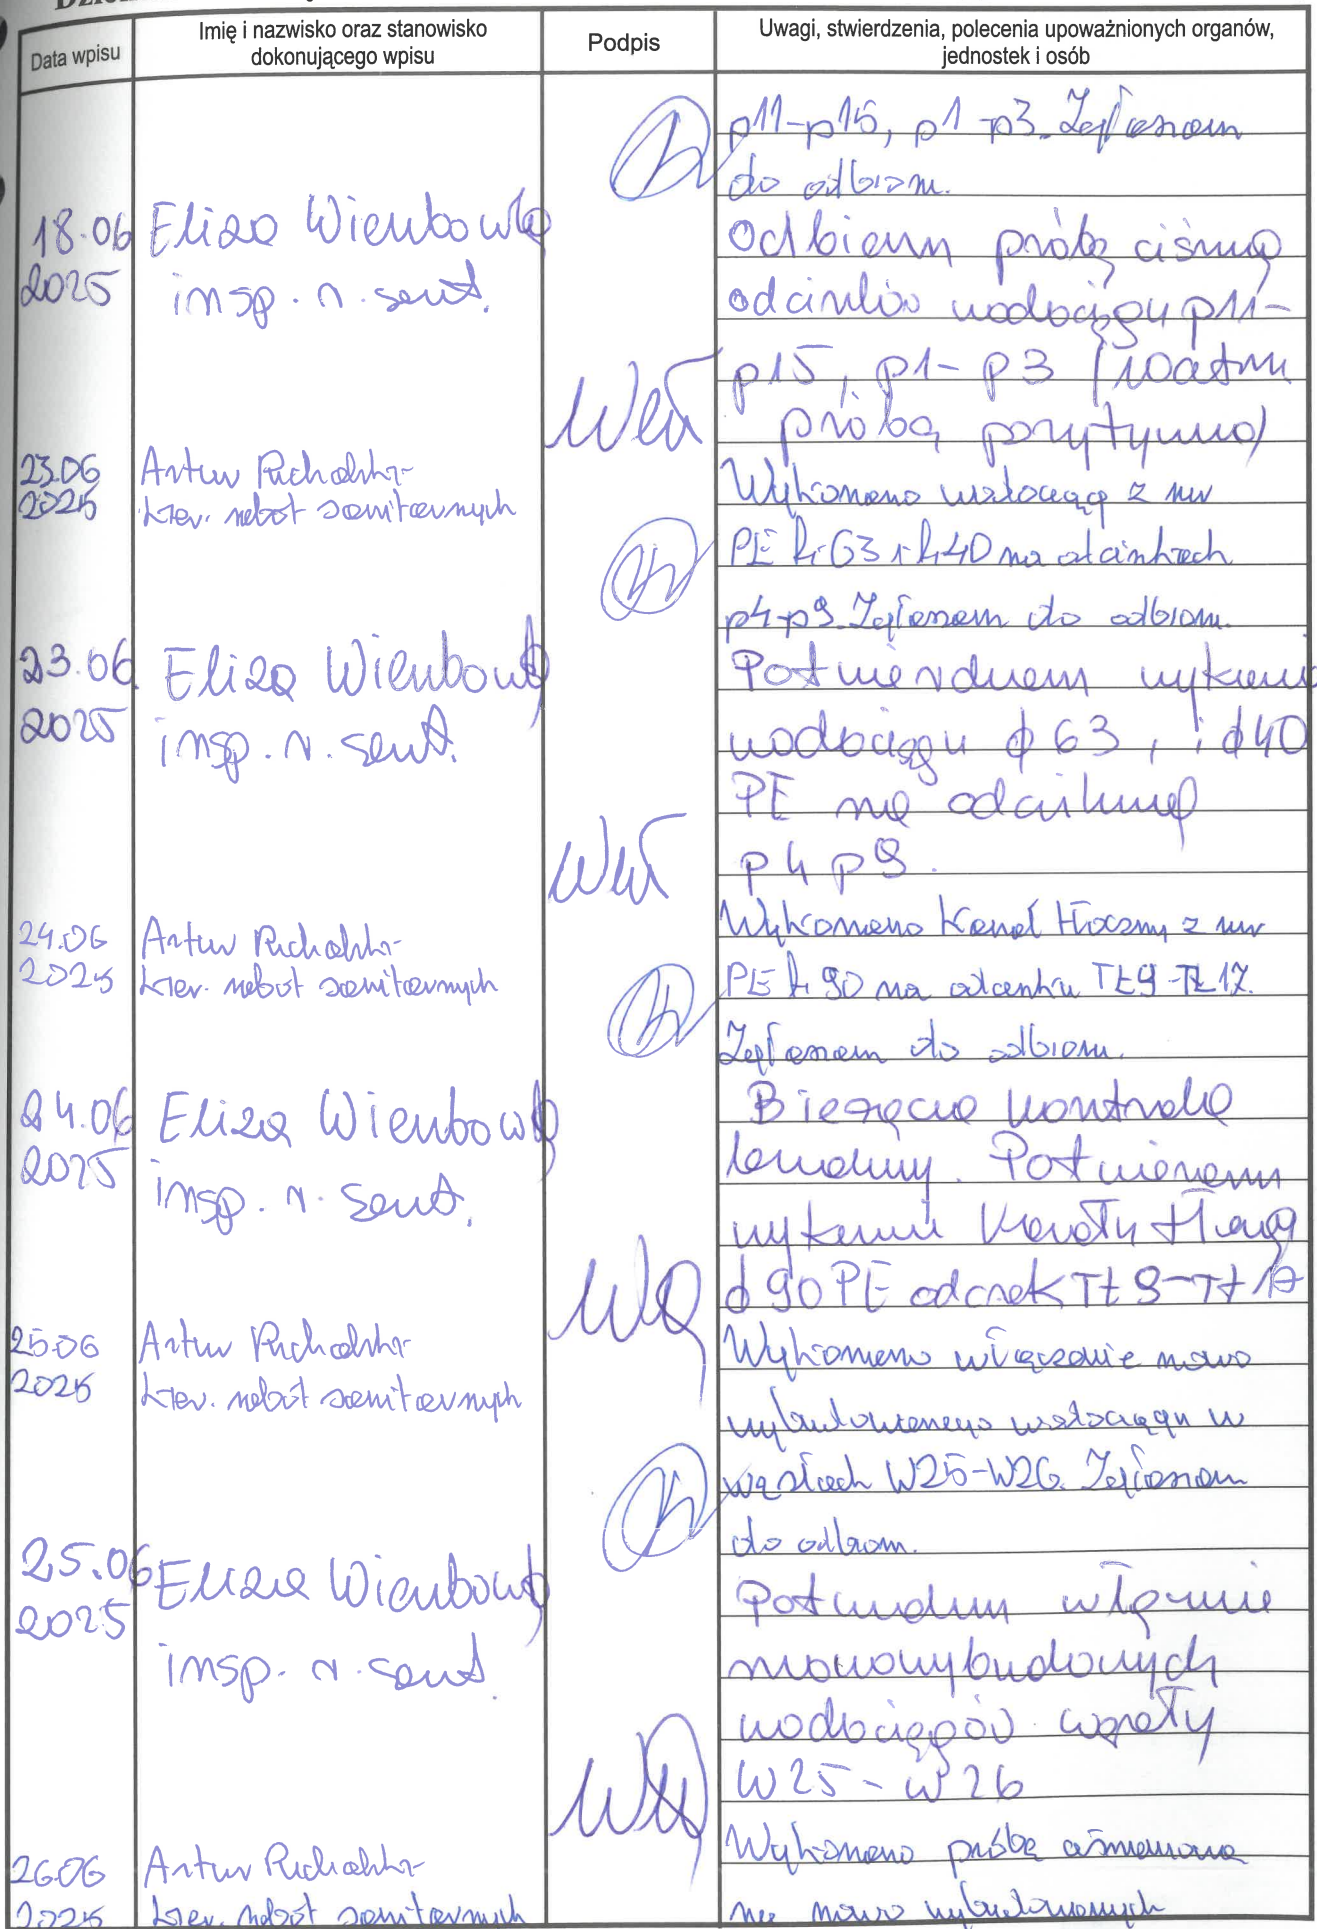 Data wpisu
Imię i nazwisko oraz stanowisko
dokonującego wpisu
Podpis
Uwagi, stwierdzenia, polecenia upoważnionych organów,
jednostek i osób
p11-p15, p1-p3. Zgłaszam
do odbioru.
18.06
2025
Eliza
insp. r. sanit.
Odbieram próbę ciśnią
odcinków wodociągu p11-
p15, p1-p3 (10atm
próba pozytywna)
23.06
2025
Artur
kier. robót sanitarnych
Wykonano wodociąg z rur
PE fi 63 i fi 40 na odcinkach
p4-p9. Zgłaszam do odbioru.
23.06
2025
Eliza
insp. r. sanit.
wodociągu ϕ 63, i ϕ 40
PE na
p4 p9.
24.06
2025
Artur
kier. robót sanitarnych
Wykonano kanał tłoczny z rur
PE fi 90 na odcinku TŁ9-TŁ17.
Zgłaszam do odbioru.
24.06
2025
Eliza
insp. r. sanit.
Bieżąca kontrola
budowy.
ϕ 90 PE Tł 9-Tł 17
25.06
2025
Artur
kier. robót sanitarnych
Wykonano włączenie nowo
wybudowanego wodociągu w
węzłach W25-W26. Zgłaszam
do odbioru.
25.06
2025
Eliza
insp. r. sanit.
nowowybudowanych
wodociągów węzły
W25-W26
26.06
2025
Artur
kier. robót sanitarnych
Wykonano próbę ciśnieniową
na nowo wybudowanych